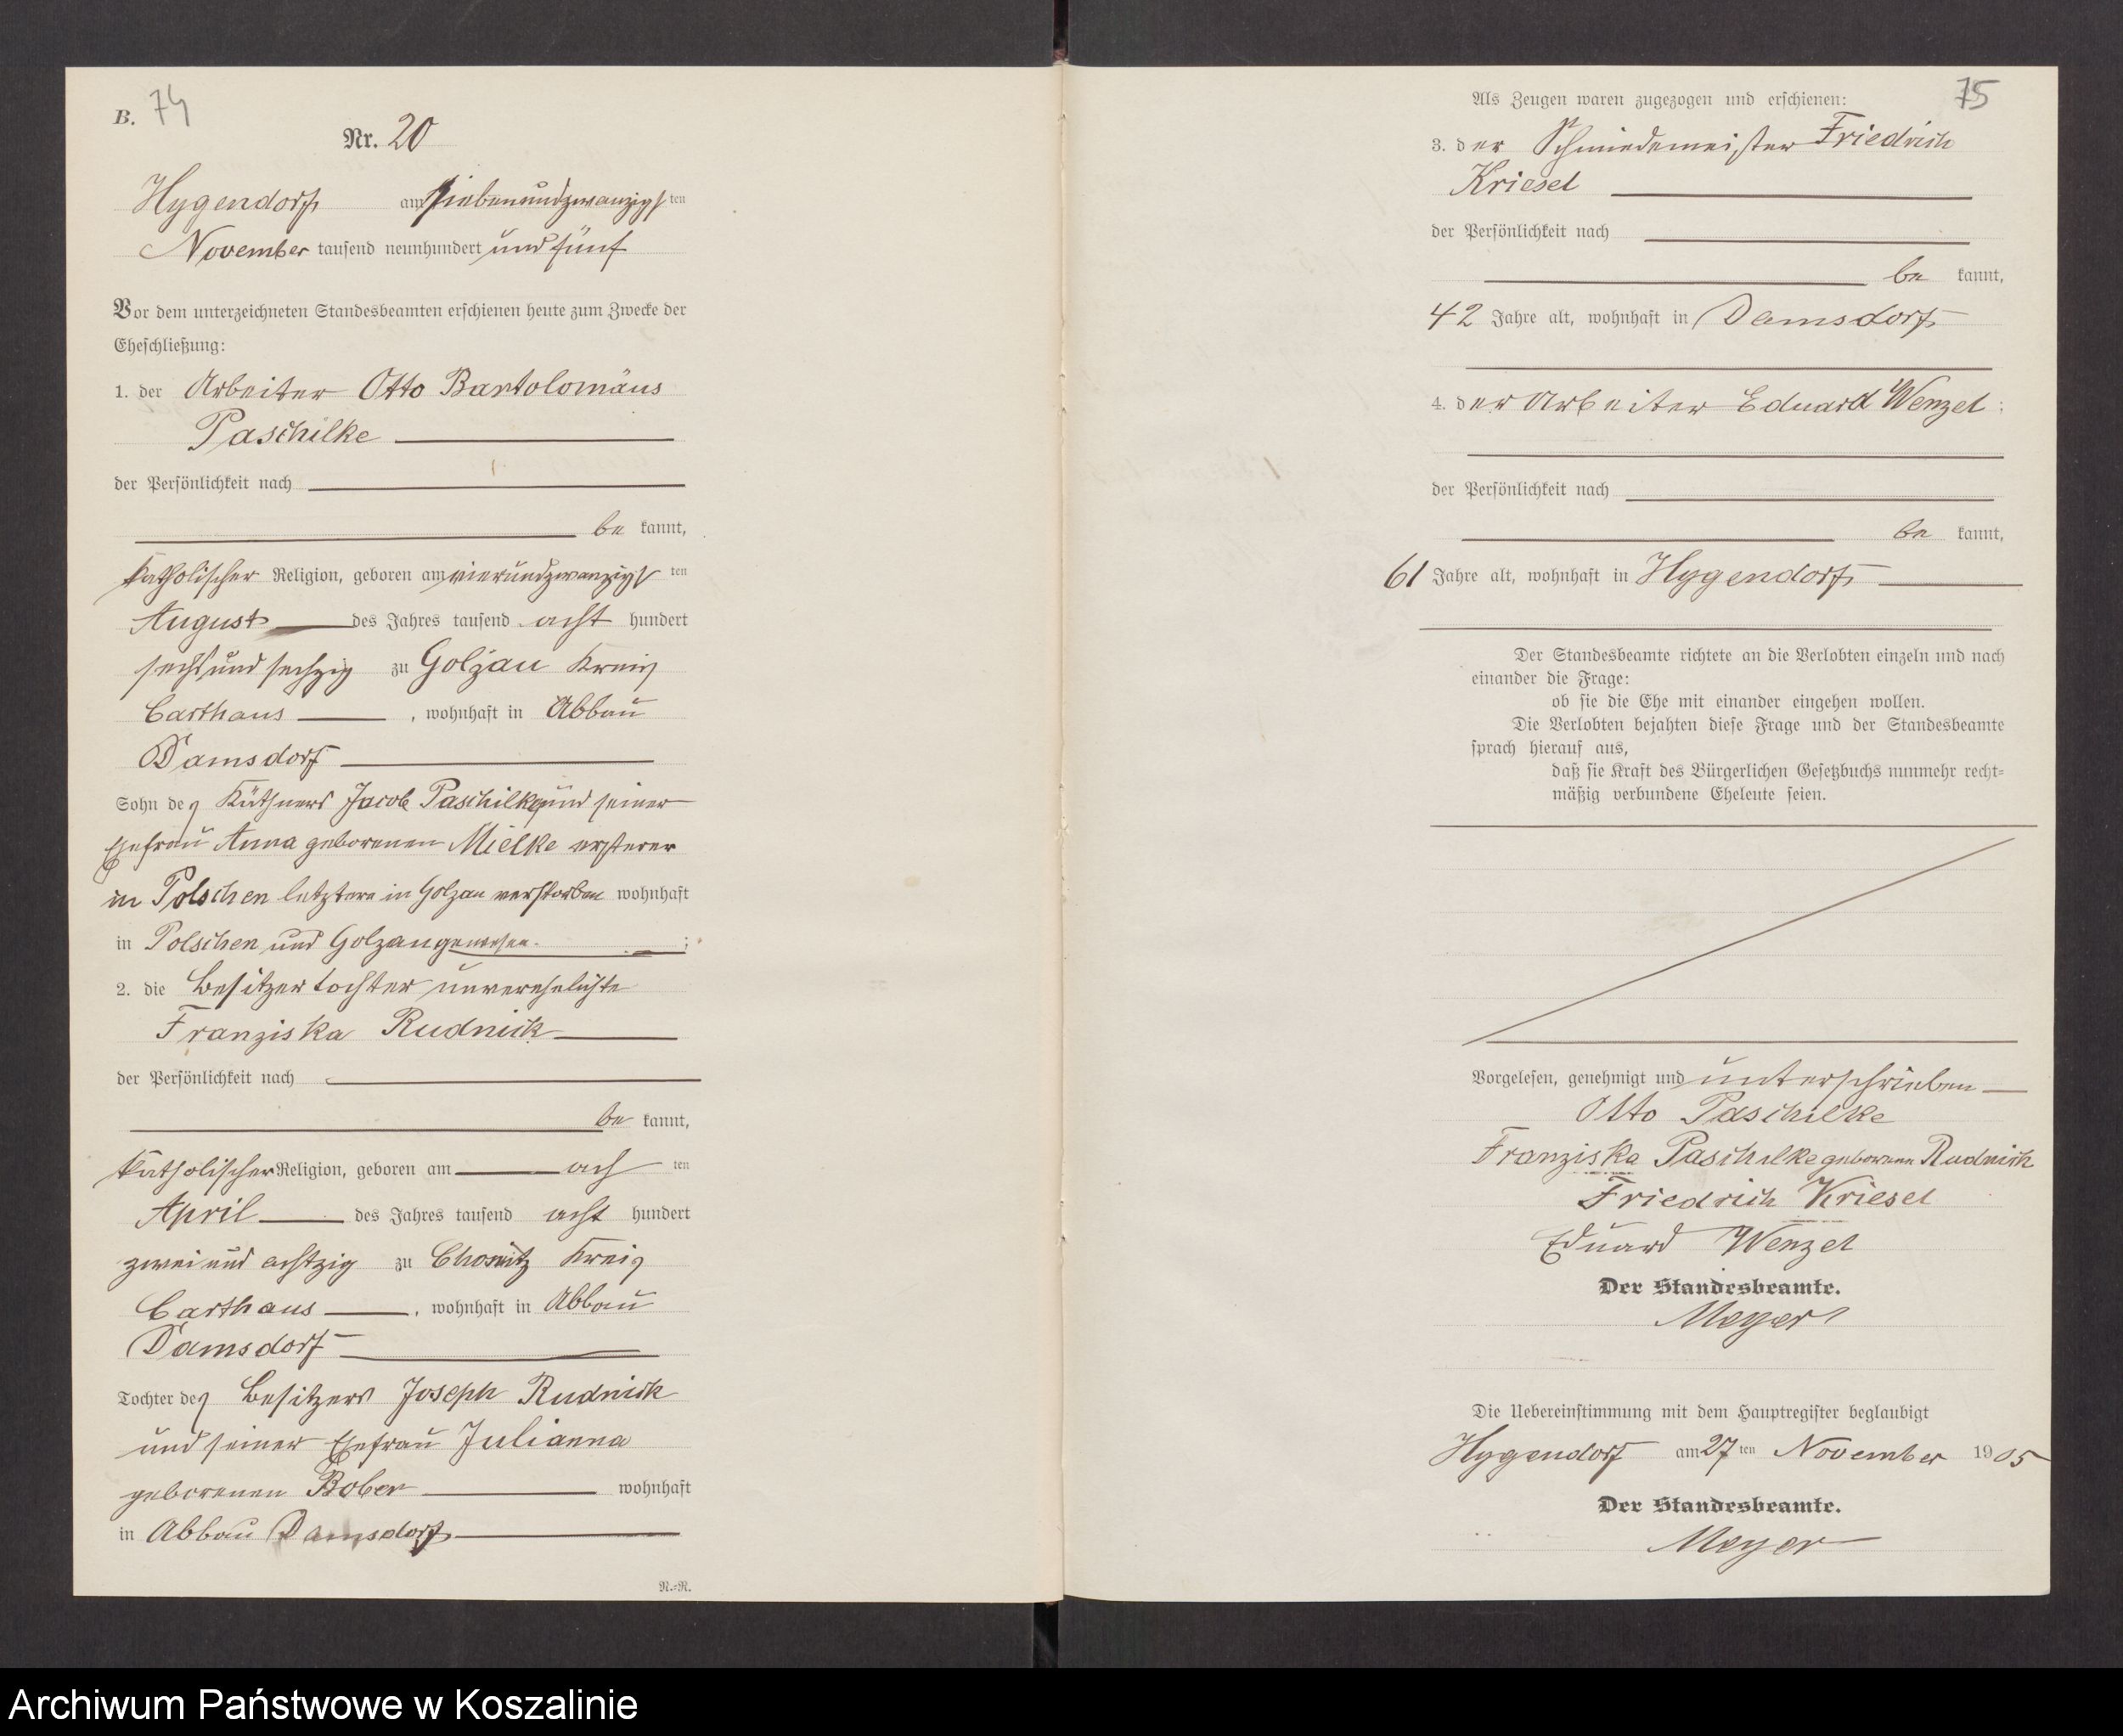 B. 74
Nr. 20
Hygendorf am siebenundzwanzigsten
November tausend neunhundert und fünf
Vor dem unterzeichneten Standesbeamten erschienen heute zum Zwecke der
Eheschließung:
1. der Arbeiter Otto Bartolomäus
Paschilke
der Persönlichkeit nach
be kannt,
katholischer Religion, geboren am vierundzwanzigsten
August des Jahres tausend acht hundert
sechsundsechzig zu Golzau Kreis
Carthaus, wohnhaft in Abbau
Damsdorf
Sohn des Käthners Jacob Paschilke und seiner
Ehefrau Anna geborenen Mielke ersterer
in Polschen letztere in Golzau verstorben wohnhaft
in Polschen und Golzau gewesen. ;
2. die Besitzertochter unverehelichte
Franziska Rudnick
der Persönlichkeit nach
be kannt,
katholischer Religion, geboren am achten
April des Jahres tausend acht hundert
zweiundachtzig zu Chosnitz Kreis
Carthaus, wohnhaft in Abbau
Damsdorf
Tochter des Besitzers Joseph Rudnick
und seiner Ehefrau Julianna
geborenen Bober wohnhaft
in Abbau Damsdorf
N.=N.
75
Als Zeugen waren zugezogen und erschienen:
3. der Schmiedemeister Friedrich
Kriesel
der Persönlichkeit nach
be kannt,
42 Jahre alt, wohnhaft in Damsdorf
4. der Arbeiter Eduard Wenzel ;
der Persönlichkeit nach
be kannt,
61 Jahre alt, wohnhaft in Hygendorf
Der Standesbeamte richtete an die Verlobten einzeln und nach
einander die Frage:
ob sie die Ehe mit einander eingehen wollen.
Die Verlobten bejahten diese Frage und der Standesbeamte
sprach hierauf aus,
daß sie Kraft des Bürgerlichen Gesetzbuchs nunmehr recht=
mäßig verbundene Eheleute seien.
Vorgelesen, genehmigt und unterschrieben
Otto Paschilke
Franziska Paschilke geborene Rudnick
Friedrich Kriesel
Eduard Wenzel
Der Standesbeamte.
Meyer
Die Uebereinstimmung mit dem Hauptregister beglaubigt
Hygendorf am 27ten November 1905
Der Standesbeamte.
Meyer
Archiwum Państwowe w Koszalinie